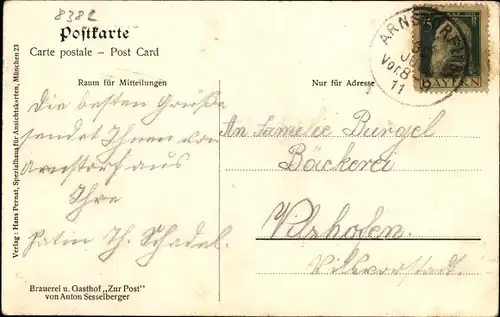 8382
Postkarte
Carte postale – Post Card
Raum für Mitteilungen
Nur für Adresse
ARNS
JU
Vor. 8-9
11
BAYERN
Die besten Grüße
sendet Ihnen von
Arnstorf aus
Ihre
Th. Schadel.
An Familee Bürgel
Bäckerei
Vilshofen.
Vilsvorstadt.
Verlag: Hans Pernat, Spezialhaus für Ansichtskarten, München 23
Brauerei u. Gasthof „Zur Post"
von Anton Sesselberger